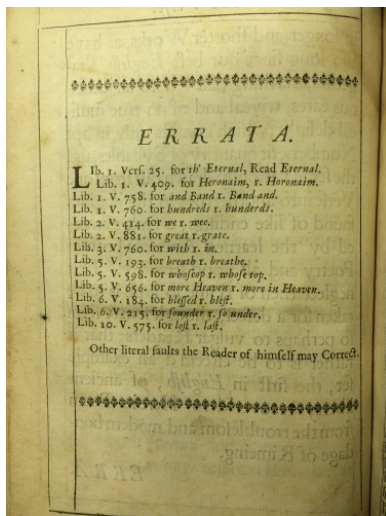 ERRATA.
LIb. 1. Vers. 25. for th' Eternal, Read Eternal.
Lib. 1. V. 409. for Heronaim, r. Horonaim.
Lib. 1. V. 758. for and Band r. Band and.
Lib. 1. V. 760. for hundreds r. hunderds.
Lib. 2. V. 414. for we r. wee.
Lib. 2. V. 881. for great r. grate.
Lib. 3. V. 760. for with r. in.
Lib. 5. V. 193. for breath r. breathe.
Lib. 5. V. 598. for whoseop r. whose top.
Lib. 5. V. 656. for more Heaven r. more in Heaven.
Lib. 6. V. 184. for blessed r. blest.
Lib. 6. V. 215. for sounder r. so under.
Lib. 10. V. 575. for lost r. last.
Other literal faults the Reader of himself may Correct.